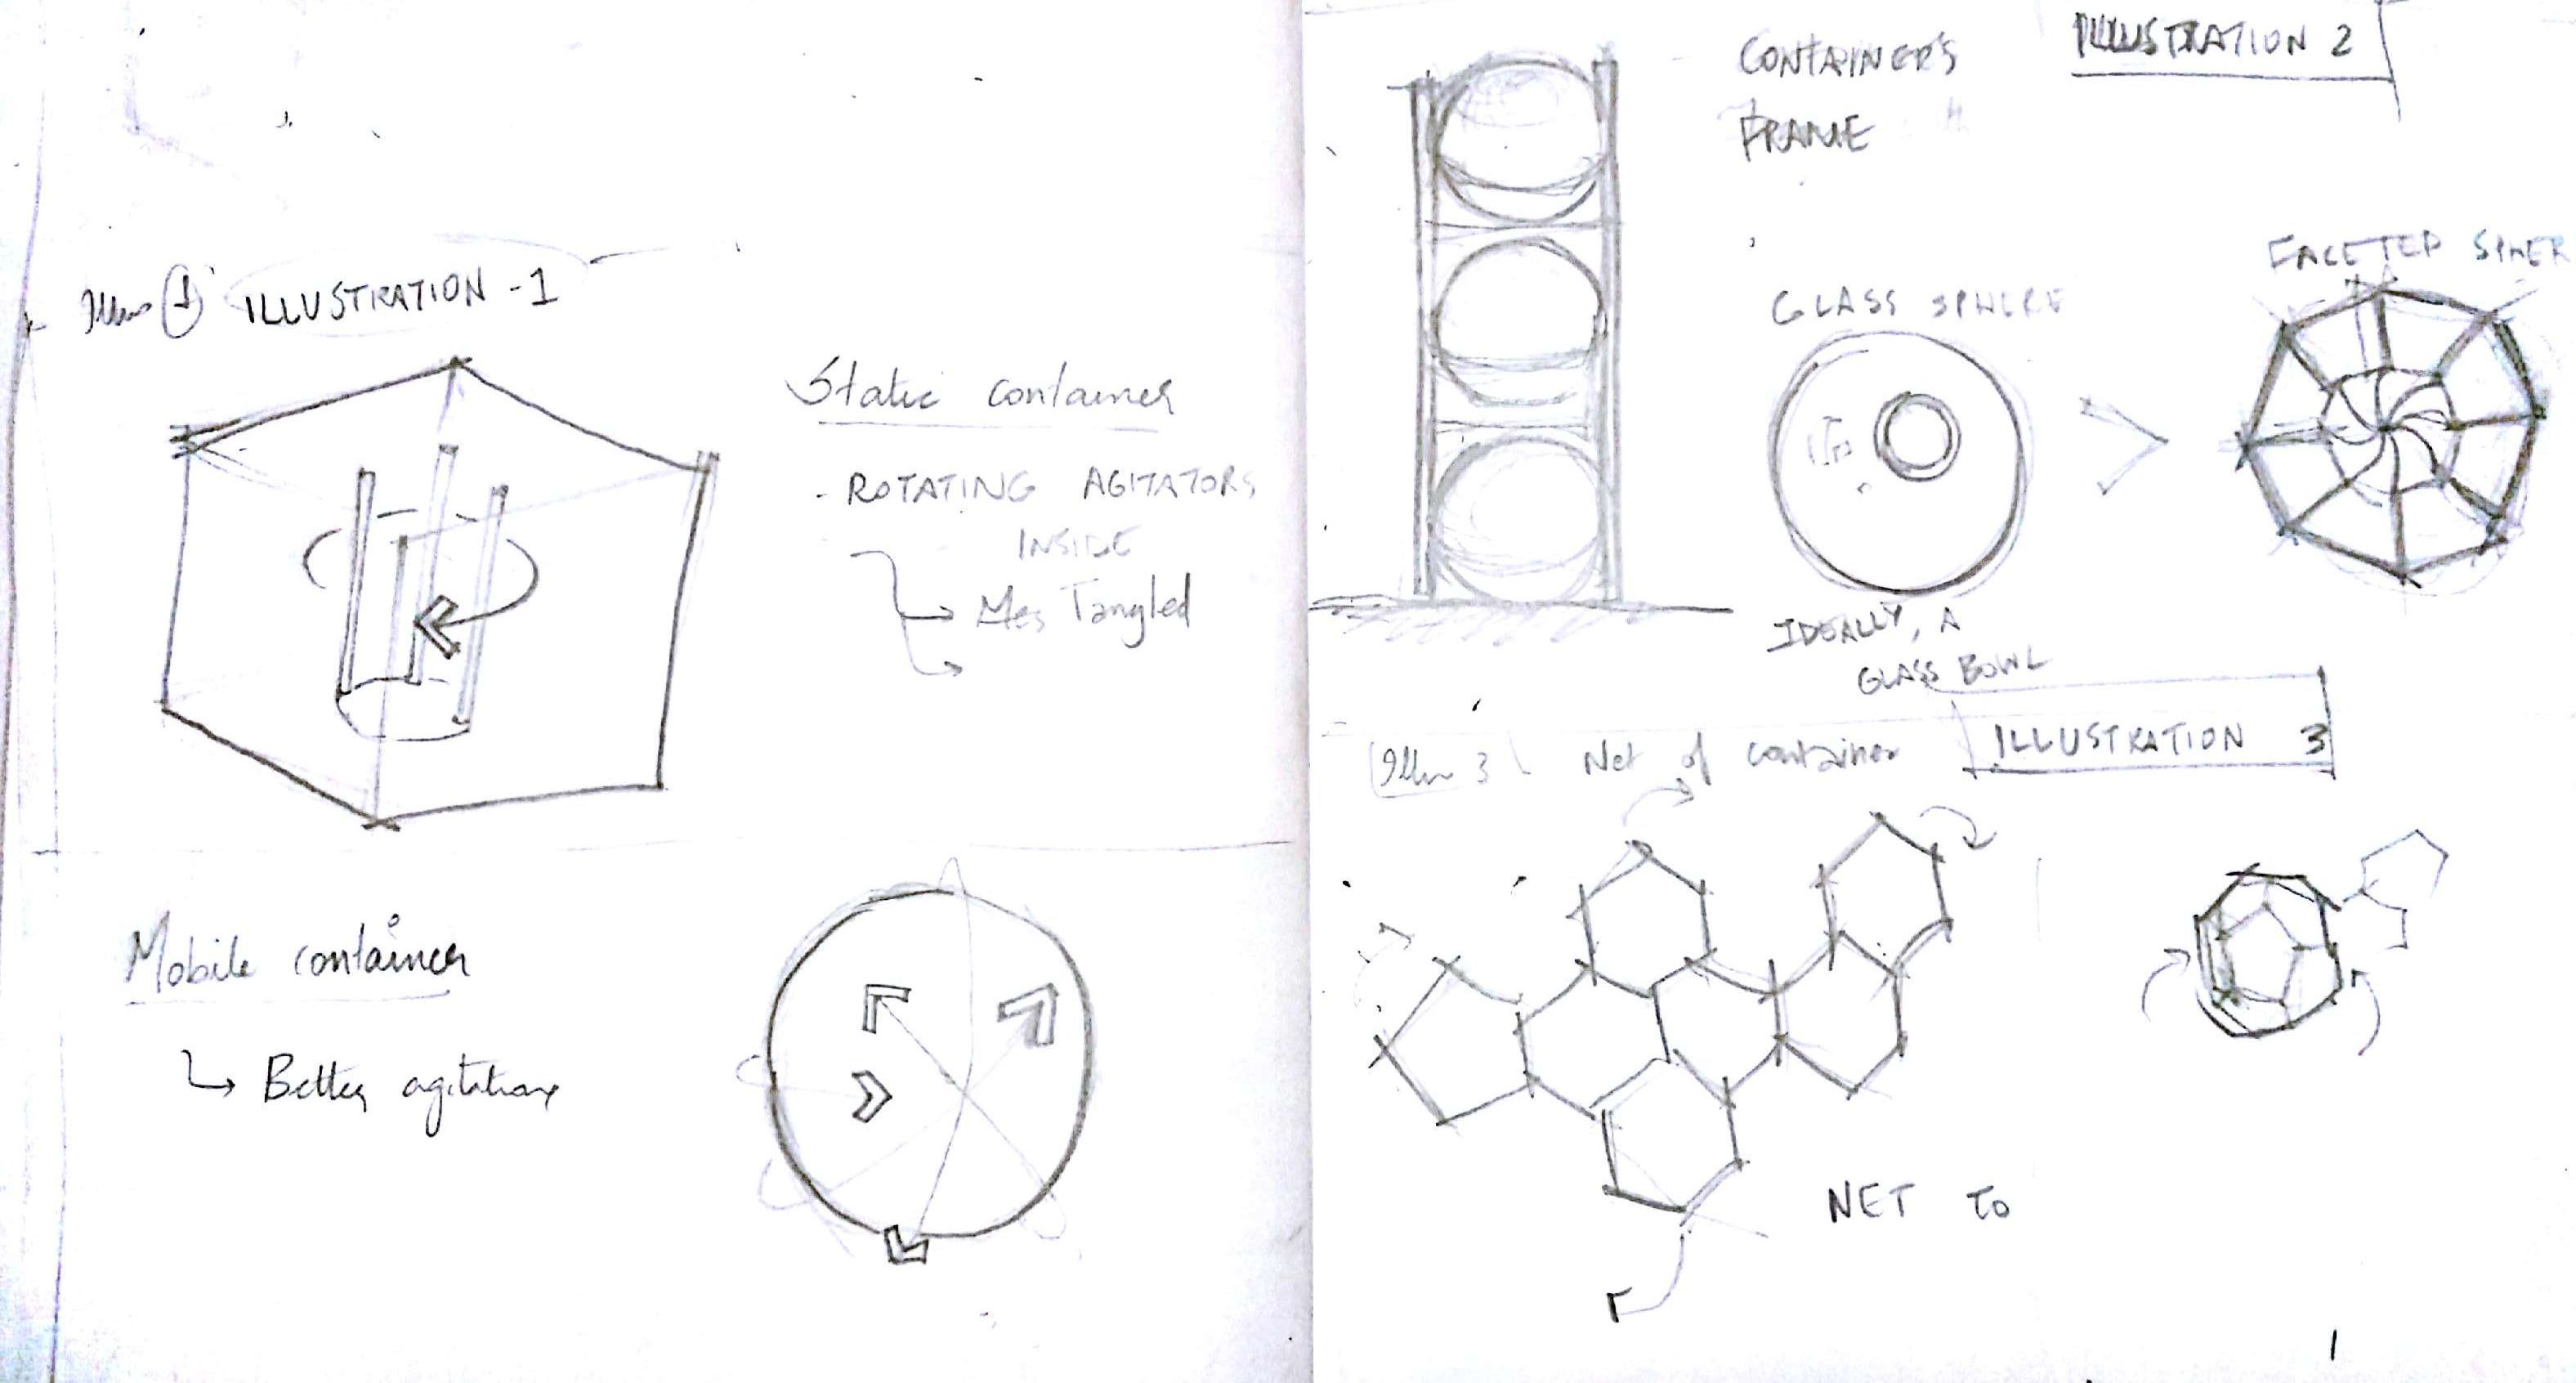 Illus 1 ILLUSTRATION - 1
Static container
- ROTATING AGITATORS
INSIDE
Tangled
Mobile container
Better agitation
ILLUSTRATION 2
CONTAINER'S
FRAME
GLASS SPHERE
FACETED SPHER
IDEALLY, A
GLASS BOWL
Illus 3 Net of container ILLUSTRATION 3
NET TO
1